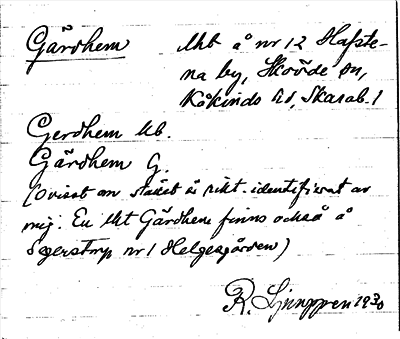 Gärdhem
Lht å nr 12 Hafste-
na by, Skövde sn,
Kåkinds hd, Skarab. l
Gerdhem Ub.
Gärdhem G.
(ovisst om stället är rikt. identifierat av
mig. En lht Gärdhem finns också å
Segerstorp nr 1 Helgesgården)
R. Ljunggren 1930